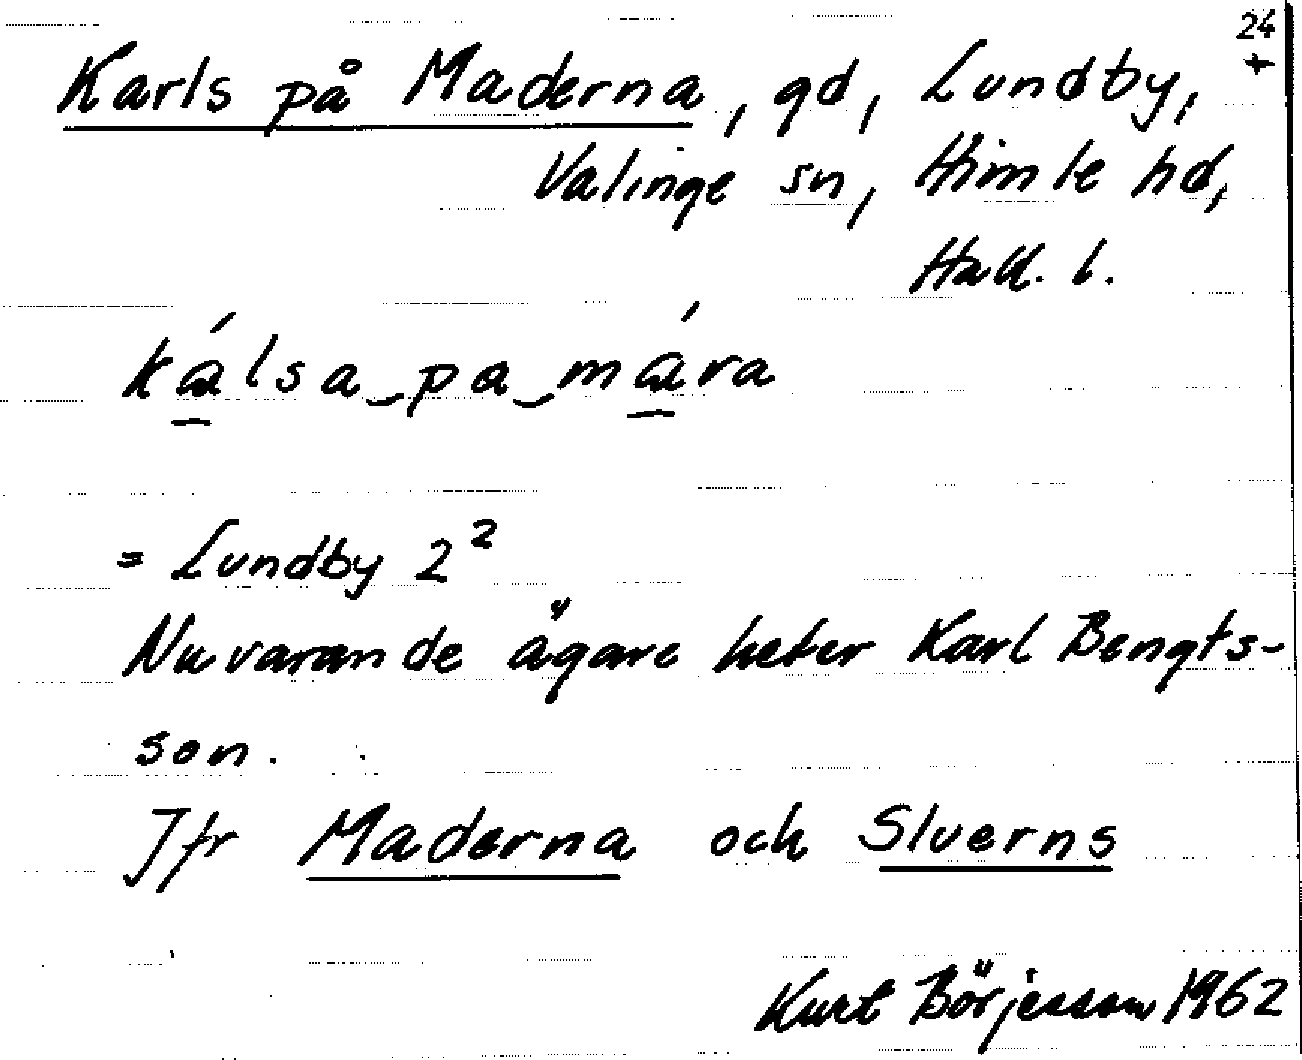 24
+
Karls på Maderna, gd, Lundby,
Valinge sn, Himle hd,
Hall. l.
kálsa‿pa‿mára
= Lundby 2²
Nuvarande ägare heter Karl Bengts-
son.
Jfr Maderna och Sluerns
Kurt Börjesson 1962